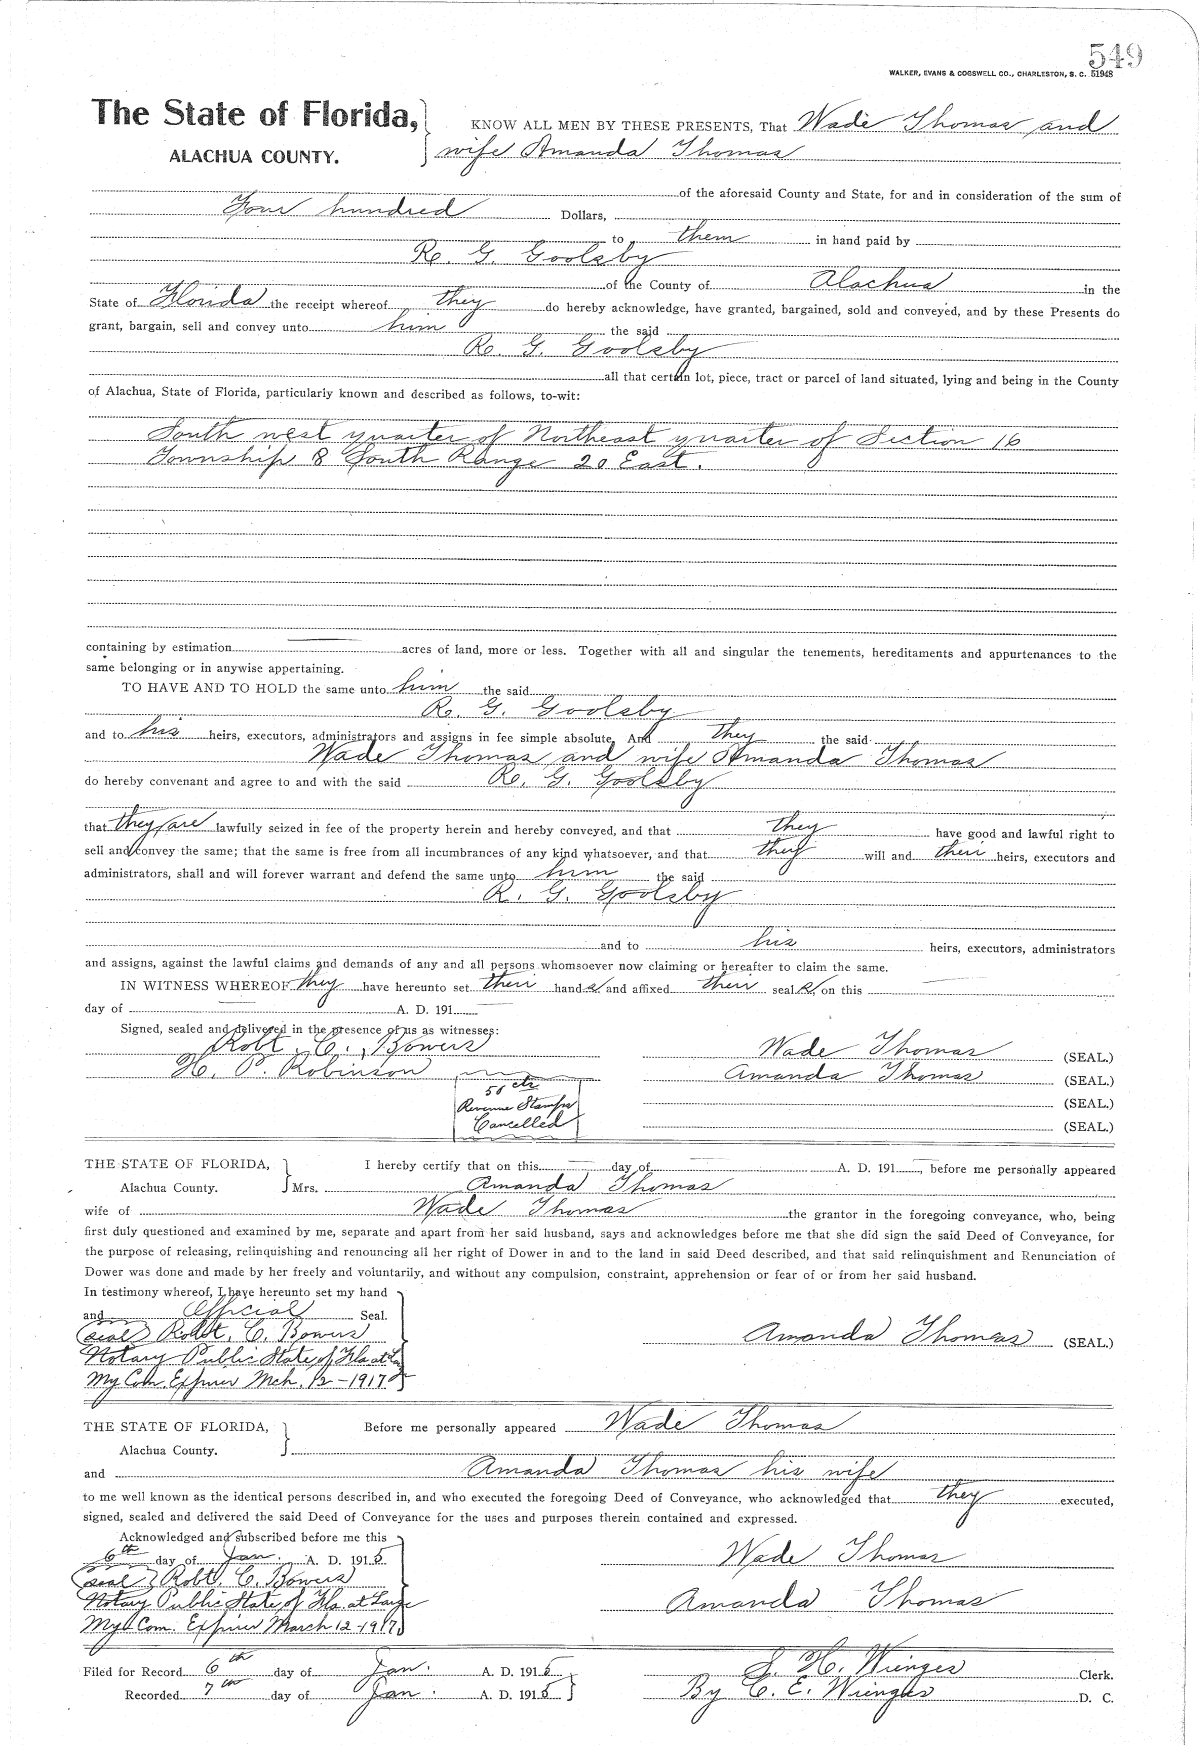 549
WALKER, EVANS & COGSWELL CO., CHARLESTON, S. C. 51948
The State of Florida,
ALACHUA COUNTY.
KNOW ALL MEN BY THESE PRESENTS, That Wade Thomas and
wife Amanda Thomas
of the aforesaid County and State, for and in consideration of the sum of
Four hundred Dollars,
to them in hand paid by
R. G. Goolsby
of the County of Alachua in the
State of Florida the receipt whereof they do hereby acknowledge, have granted, bargained, sold and conveyed, and by these Presents do
grant, bargain, sell and convey unto him the said
R. G. Goolsby
all that certain lot, piece, tract or parcel of land situated, lying and being in the County
of Alachua, State of Florida, particularly known and described as follows, to-wit:
South west quarter of Northeast quarter of Section 16
Township 8 South Range 20 East.
containing by estimation acres of land, more or less. Together with all and singular the tenements, hereditaments and appurtenances to the
same belonging or in anywise appertaining.
TO HAVE AND TO HOLD the same unto him the said
R. G. Goolsby
and to his heirs, executors, administrators and assigns in fee simple absolute. And they the said
Wade Thomas and wife Amanda Thomas
do hereby convenant and agree to and with the said R. G. Goolsby
that they are lawfully seized in fee of the property herein and hereby conveyed, and that they have good and lawful right to
sell and convey the same; that the same is free from all incumbrances of any kind whatsoever, and that they will and their heirs, executors and
administrators, shall and will forever warrant and defend the same unto him the said
R. G. Goolsby
and to his heirs, executors, administrators
and assigns, against the lawful claims and demands of any and all persons whomsoever now claiming or hereafter to claim the same.
IN WITNESS WHEREOF they have hereunto set their hand s and affixed their seal s on this
day of A. D. 191
Signed, sealed and delivered in the presence of us as witnesses:
Robt. C. Bowers
H. P. Robinson
Wade Thomas (SEAL.)
Amanda Thomas (SEAL.)
(SEAL.)
(SEAL.)
50 cts
Revenue Stamps
Cancelled
THE STATE OF FLORIDA,
Alachua County.
I hereby certify that on this day of A. D. 191 , before me personally appeared
Mrs. Amanda Thomas
wife of Wade Thomas the grantor in the foregoing conveyance, who, being
first duly questioned and examined by me, separate and apart from her said husband, says and acknowledges before me that she did sign the said Deed of Conveyance, for
the purpose of releasing, relinquishing and renouncing all her right of Dower in and to the land in said Deed described, and that said relinquishment and Renunciation of
Dower was done and made by her freely and voluntarily, and without any compulsion, constraint, apprehension or fear of or from her said husband.
In testimony whereof, I have hereunto set my hand
and Official Seal.
(seal) Robt. C. Bowers
Notary Public State of Fla at Lar
My Com. Expires Mch. 12-1917
Amanda Thomas (SEAL.)
THE STATE OF FLORIDA,
Alachua County.
Before me personally appeared Wade Thomas
and Amanda Thomas his wife
to me well known as the identical persons described in, and who executed the foregoing Deed of Conveyance, who acknowledged that they executed,
signed, sealed and delivered the said Deed of Conveyance for the uses and purposes therein contained and expressed.
Acknowledged and subscribed before me this
6th day of Jan. A. D. 1915
(seal) Robt. C. Bowers
Notary Public State of Fla. at Large
My Com. Expires March 12-1917
Wade Thomas
Amanda Thomas
Filed for Record 6th day of Jan. A. D. 1915
Recorded 7th day of Jan. A. D. 1915
S. H. Wienges Clerk.
By C. E. Wienges D. C.